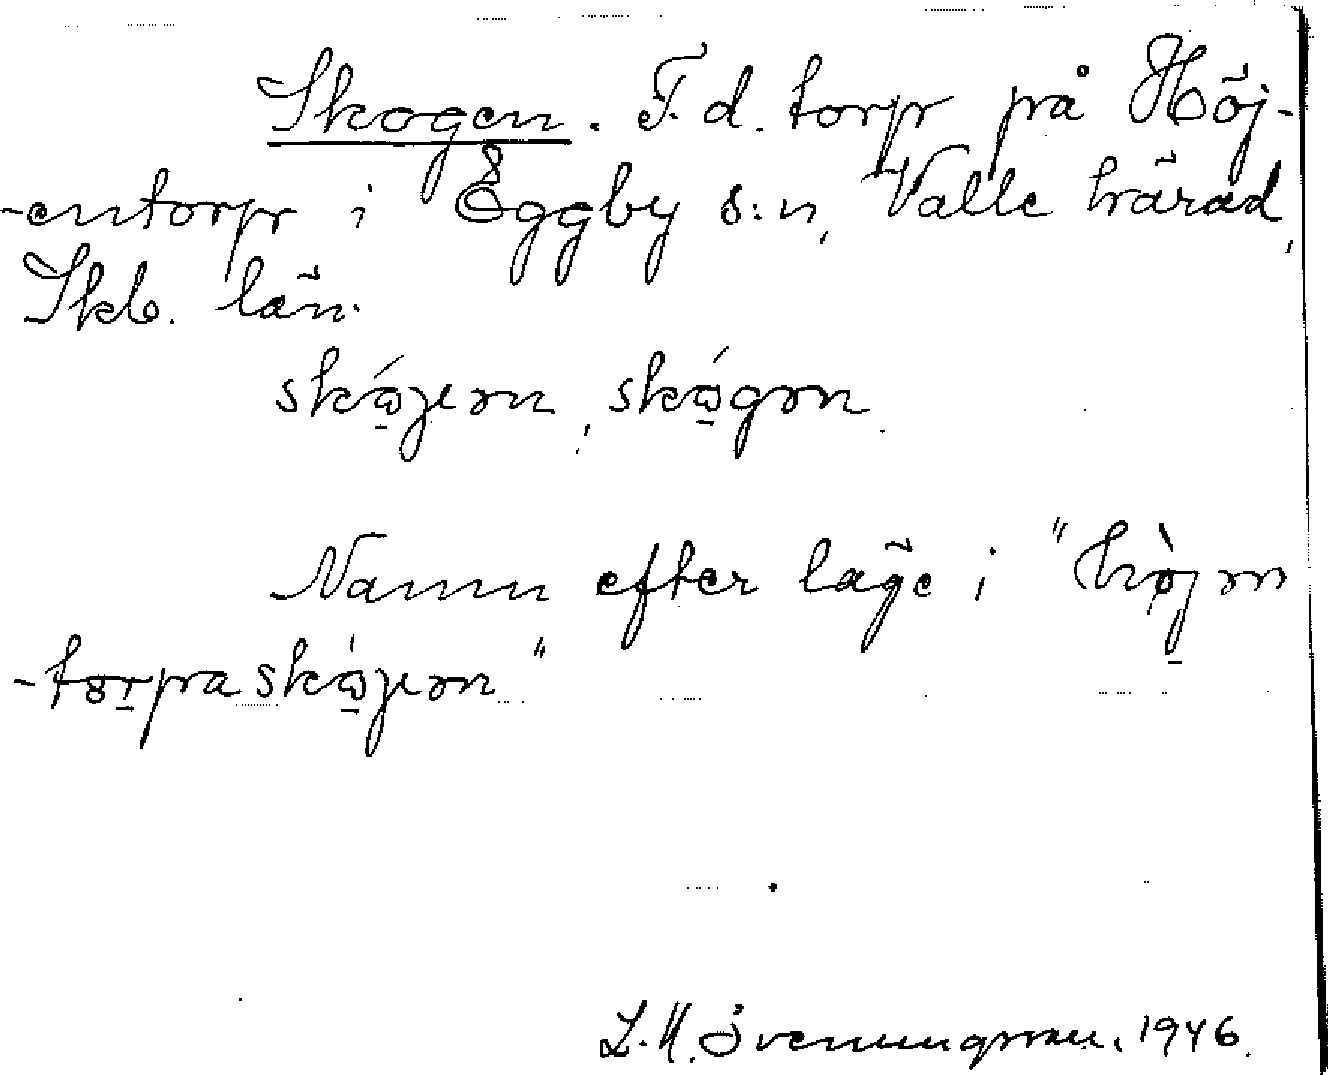 Skogen. F. d. torp på Höj-
-entorp i Eggby s:n, Valle härad,
Skb. län.
skógen, skógən
Namn efter läge i "hòjən
-torpaskógen"
L. H. Svenungsson, 1946.